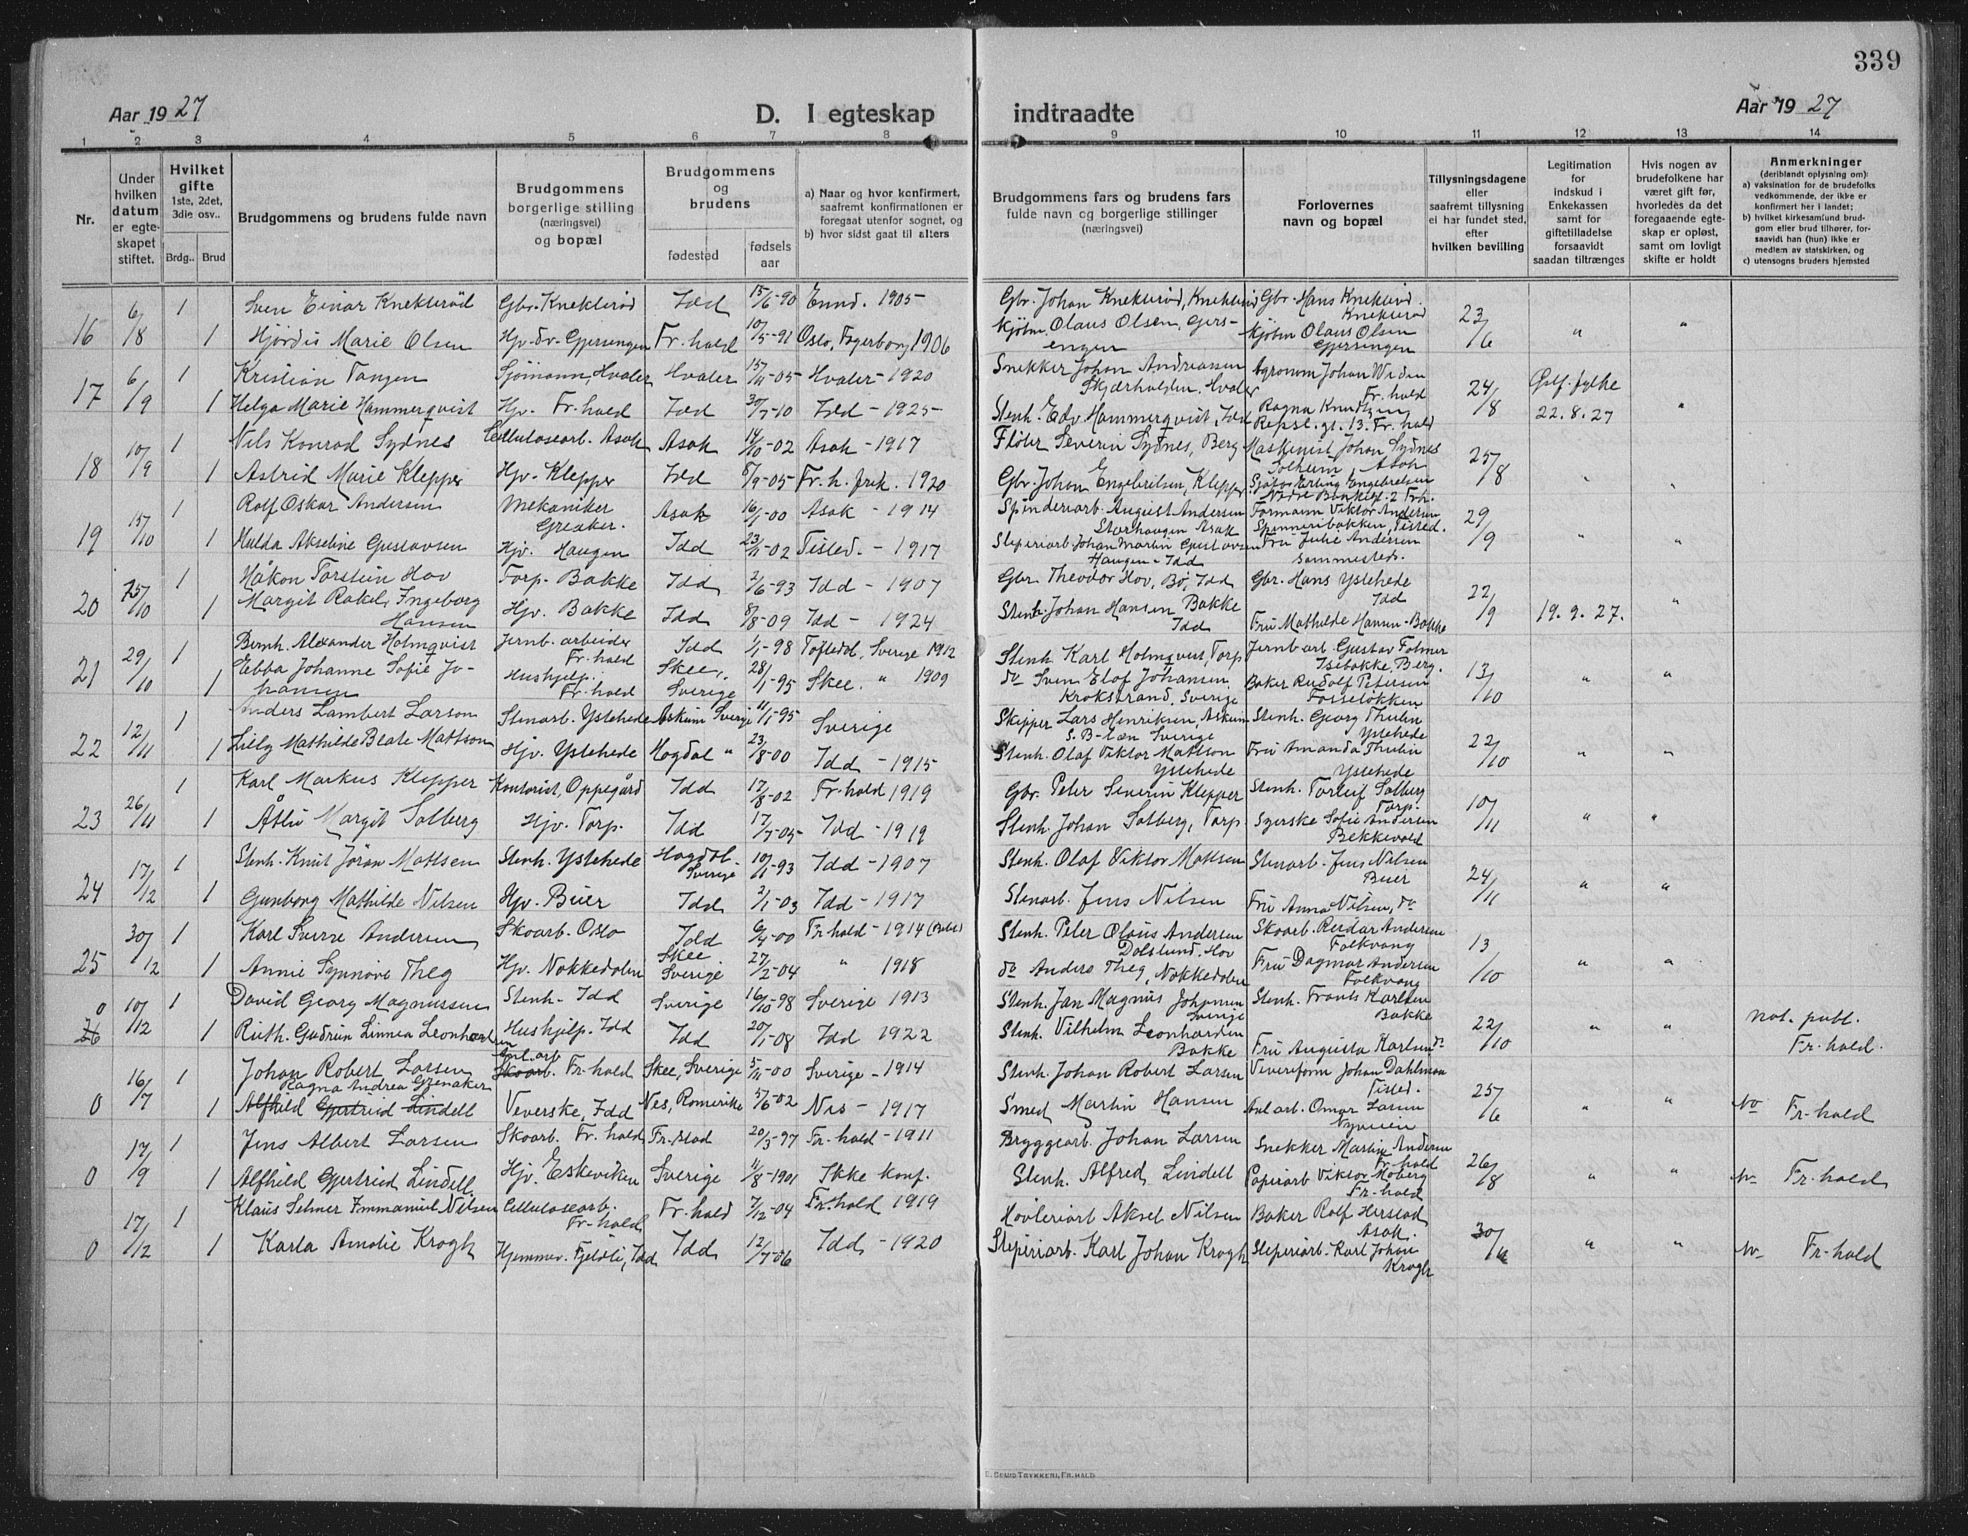 339
Aar 1927 D. I egteskap indtraadte Aar 1927
1 2 3 4 5 6 7 8 9 10 11 12 13 14
Nr.
Under hvilken datum er egteskapet stiftet.
Hvilket gifte 1ste, 2det, 3die osv..
Brdg.. Brud
Brudgommens og brudens fulde navn
Brudgommens borgerlige stilling (næringsvei) og bopæl
Brudgommens og brudens
fødestad
fødsels aar
a) Naar og hvor konfirmert, saafremt konfirmationen er foregaat utenfor sognet, og
b) hvor sidst gaat til alters
Brudgommens fars og brudens fars fulde navn og borgerlige stillinger (næringsvei)
Forlovernes navn og bopæl
Tillysningsdagene eller saafremt tillysning ei har fundet sted, efter hvilken bevilling
Legitimation for indskud i Enkekassen samt for giftetilladelse forsaavidt saadan tiltrænges
Hvis nogen av brudefolkene har været gift før, hvorledes da det foregaaende egteskap er opløst, samt om lovligt skifte er holdt
Anmerkninger (deriblandt oplysning om):
a) vaksination for de brudefolks vedkommende, der ikke er konfirmert her i landet;
b) hvilket kirkesamfund brudgom eller brud tilhører, forsaavidt han (hun) ikke er medlem av statskirken, og
c) utensogns bruders hjemsted
16 6/8 1 Sven Einar Knekterød Gbr. Knekterød Idd 15/6-90 Ennd. 1905 - Gbr. Johan Knekterød, Gbr. Hans Knekterød. Knekterød 23/6 " "
1 Hjørdis Marie Olsen Hjv. dr. Gjersengen Fr.hald 10/5-91 Oslo, Fagerborg 1906 Kjøbm. Olaus Olsen, Gersengen Kjøbm Olaus Olsen Gjersengen
17 6/9 1 Kristian Tangen Sjømann, Hvaler Hvaler 15/11-05 Hvaler - 1920 Snekker Johan Andreassen Skjærhalden, Hvaler Agronom Johan Weden Fr.hald 24/8 Østf. fylke 22.8.27 "
1 Helga Marie Hammerqvist Hjv. Fr.hald Idd 30/7-10 Idd - 1925- Stenh. Edv. Hammerqvist, Idd Ragna Knudtzen Repsl.gt. 13. Fr.hald
18 10/9 1 Nils Konrad Sydnes Cellulosearb. Asak Asak 14/10-02 Asak - 1917 Fløter Severin Sydnes, Berg Maskinist Johan Sydnes Solheim Asak 25/8 " "
1 Astrid Marie Klepper Hjv. Klepper Idd 8/9-05 Fr.h. frik. 1920 Gbr. Johan Engebretsen, Klepper Erling Engebretsen Nedre Bankegt. 2 Frh.
19 15/10 1 Rolf Oskar Andersen Mekaniker Greaker. Asak 16/1-00 Asak - 1914 Spinderiarb. August Andersen Storhaugen Asak Formann Viktor Andersen Spinneribakken, Tisted. 29/9 " "
1 Hulda Akseline Gustavsen Hjv. Haugen Idd 23/11-02 Tisted. - 1917 Sliperiarb Johan Martin Gustavsen Haugen - Idd Fru Julie Andersen sammesteds.
20 15/10 1 Håkon Torstein Hov Torp - Bakke Idd 2/6-93 Idd - 1907 Gbr. Theodor Hov, Bø, Idd Gbr. Hans Ystehede Idd 22/9 19.9.27. "
1 Margit Rakel Ingeborg Hansen Hjv. Bakke Idd 8/8-09 Idd - 1924 Stenh. Johan Hansen Bakke Idd Fru Mathilde Hansen - Bakke
21 29/10 1 Bernh. Alexander Holmqvist Jernb. arbeider Fr.hald Idd 1/1-98 Töftedal, Sverige 1912 Stenh. Karl Holmqvist, Torp Jernb arb. Gustav Folmer Isebakke, Berg. 13/10 " "
1 Ebba Johanne Sofie Johansen Hushjelp. Fr.hald Skee, Sverige 28/1-95 Skee. " 1909 do Sven Elof Johansen Krokstrand, Sverige Baker Rudolf Petersen Fosseløkken
22 12/11 1 Anders Lambert Larson Stenarb. Ystehede Askum Sverige 11/1-95 Sverige Skipper Lars Henriksen, Askum G. B-læn Sverige Stenh. Georg Thulin Ystehede 22/10 " "
1 Lilly Mathilde Beate Mattson Hjv. Ystehede Hogdal " 23/8-00 Idd - 1915 Stenh. Olaf Viktor Mattson Ystehede Fru Amanda Thulin Ystehede
23 26/11 1 Karl Markus Klepper Kontorist, Oppegård Idd 17/8-02 Fr.hald 1919 Gbr. Peter Severin Klepper Stenh. Torleif Solberg Torp. 10/11 " "
1 Åslu Margit Solberg Hjv. Torp. Idd 17/7-05 Idd - 1919 Stenh. Johan Solberg, Torp Syerske Sofie Andersen Bekkevold
24 17/12 1 Stenh. Knut Jöran Mattsen Stenh. Ystehede Hogdal. Sverige 10/1-93 Idd - 1907 Stenh. Olaf Viktor Mattsen Stenarb. Jens Nilsen Buer 24/11 " "
1 Gunborg Mathilde Nilsen Hjv. Buer Idd 2/1-03 Idd - 1917 Stenarb. Jens Nilsen Fru Anna Nilsen, do
25 30/12 1 Karl Sverre Andersen Skoarb. Oslo Idd 6/4-00 Fr.hald - 1914 Stenh. Peter Olaus Andersen Dalslund, Hov Skoarb. Reidar Andersen Folkvang 13/10 " "
1 Annie Synnøve Theg Hjv. Nokkedalen Skee Sverige 27/2-04 " 1918 do Anders Theg, Nokkedalen Fru Dagmar Andersen Folkvang
0 26 10/12 1 David Georg Magnussen Stenh. Idd Sverige 16/10-98 Sverige 1913 Stenh. Jan Magnus Johansen Sverige Stenh. Frants Karlsen Bakke 22/10 " " not. publ. Fr.hald.
1 Ruth. Gudrun Linnea Leonhardsen Hushjelp. Idd Idd 20/1-08 Idd 1922 Stenh. Vilhelm Leonhardsen Bakke Fru Augusta Karlsen do
0 16/7 1 Johan Robert Larsen Anl.arb. Skoarb. Fr.hald Skee, Sverige 5/11-00 Sverige - 1914 Stenh. Johan Robert Larsen Veveriform Johan Dahlman Tisted. 25/6 " " do Fr.hald
1 Ragna Andrea Grenaker Alfhild Gjertrud Lindell Veverske, Idd Nes, Romerike 5/6-02 Nes - 1917 Smed Martin Hansen Anl arb. Omar Larsen Nyveien
0 17/9 1 Jens Albert Larsen Skoarb. Fr.hald Fr.stad 20/3-97 Fr.hald - 1911 Bryggearb. Johan Larsen Snekker Martin Andersen Fr.hald 26/8 " " do Fr.hald
1 Alfhild Gjertrud Lindell Hjv. Eskeviken Sverige 11/8-1901 Ikke konf. Stenh. Alfred Lindell Papirarb Viktor Moberg Fr.hald
0 17/12 1 Klaus Selmer Emmanuel Nilsen Cellulosearb. Fr.hald Fr.hald 7/12-04 Fr.hald 1919 Høvleriarb Aksel Nilsen Baker Rolf Herstad Asak. 30/6 " " do Fr.hald
1 Karla Amalie Krogh Hjemmev. Fjeldli, Idd Idd 12/7-06 Idd - 1920 Sliperiarb. Karl Johan Krogh Sliperiarb. Karl Johan Krogh
E. Sems Trykkeri, Fr.hald